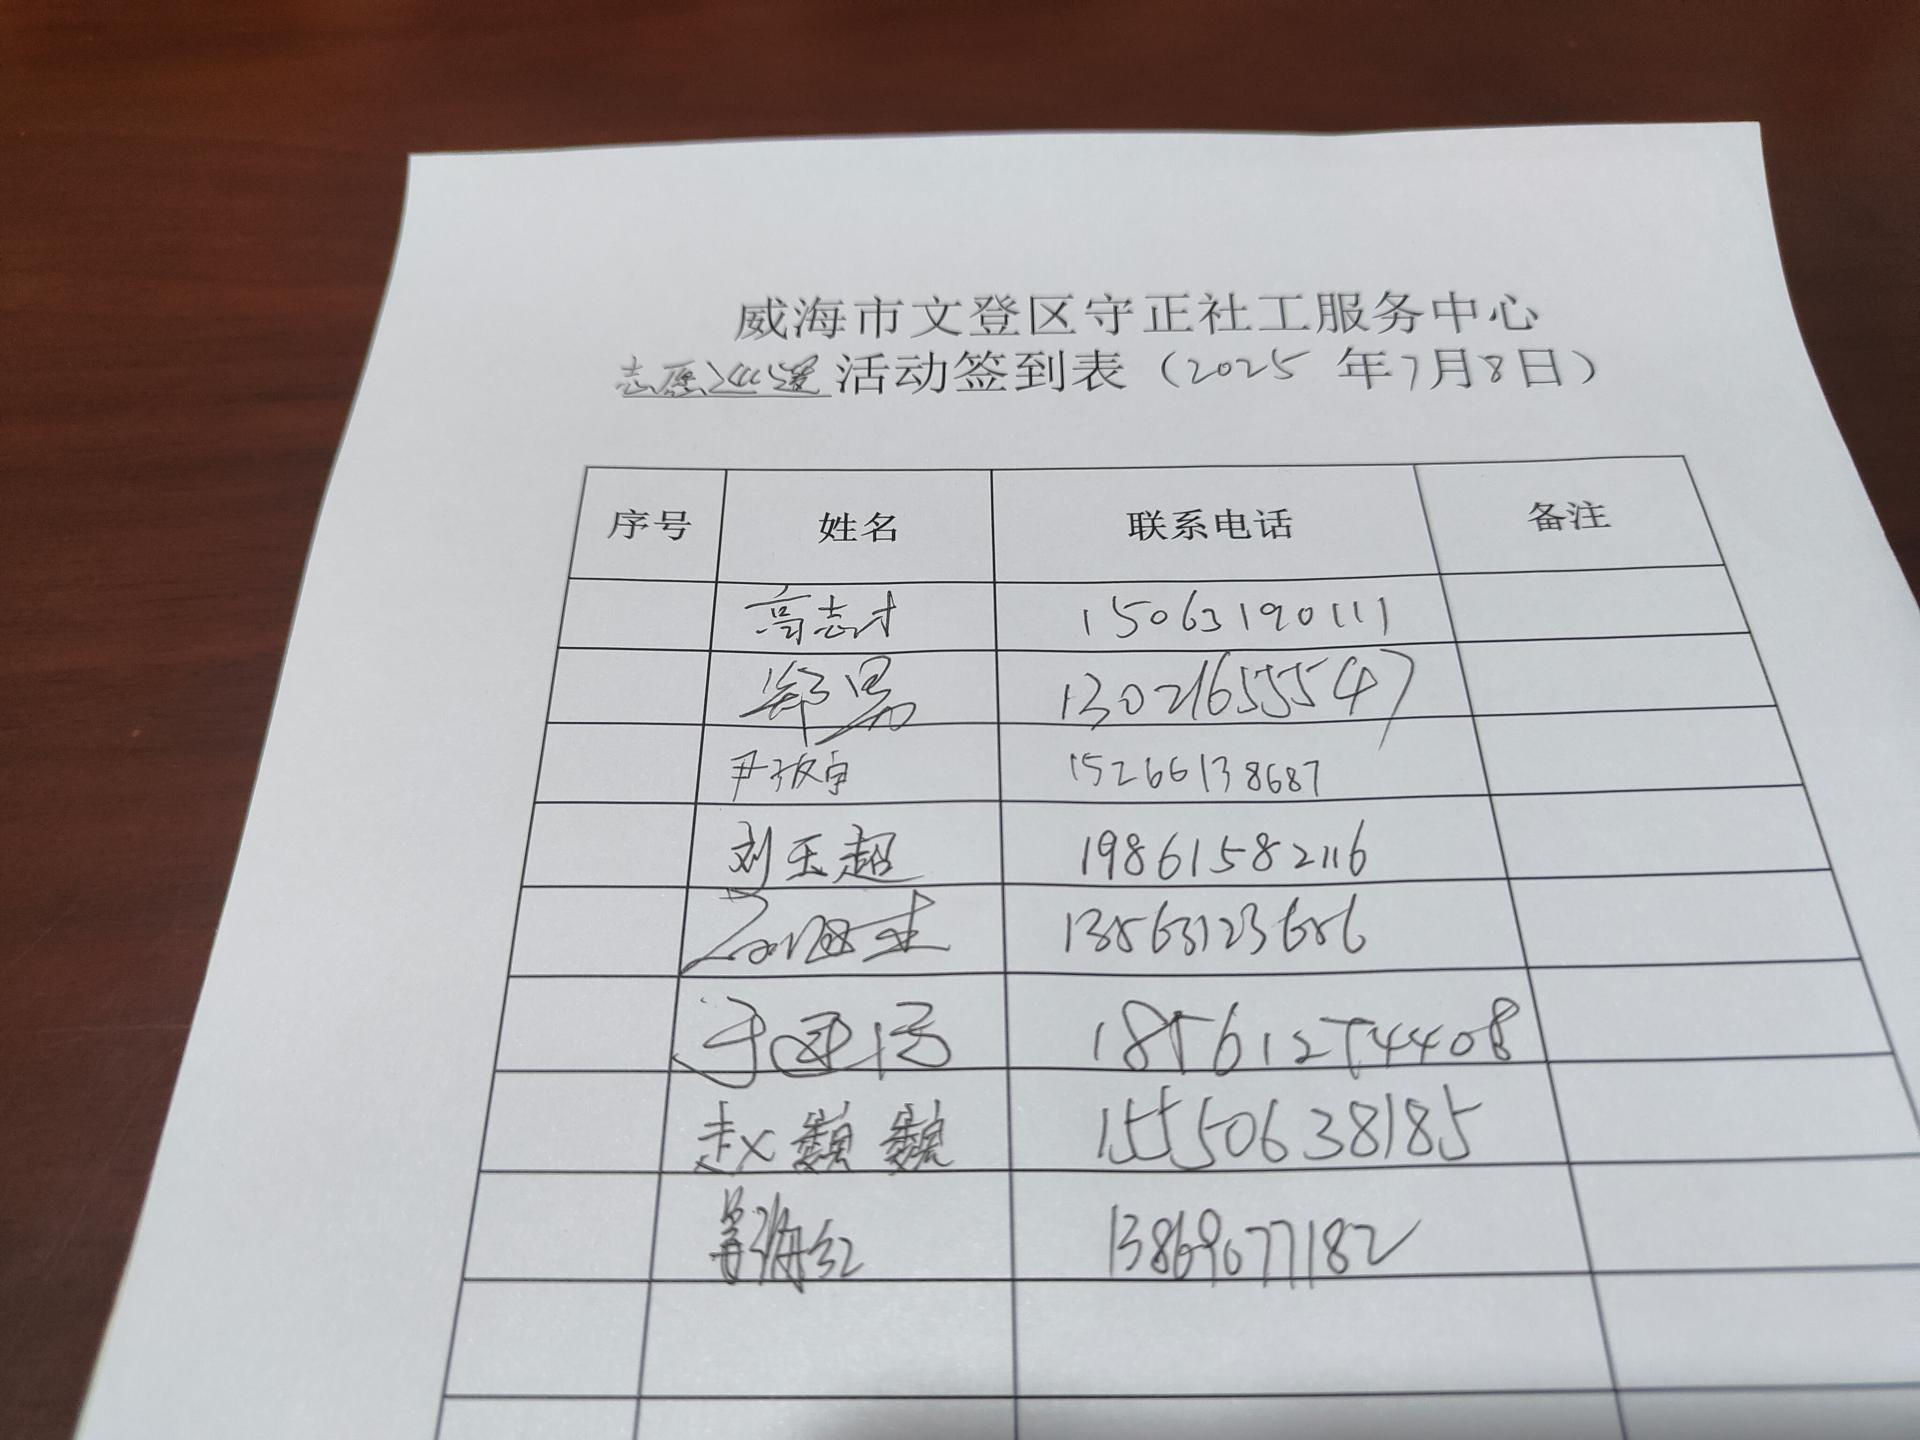 威海市文登区守正社工服务中心
志愿巡逻活动签到表（2025年7月8日）
序号 姓名 联系电话 备注
高志才 15063190111
郑昱 13021655547
尹振宇 15266138687
刘玉超 19861582116
13863123686
18561254408
赵巍巍 15550638185
姜海红 13869077182